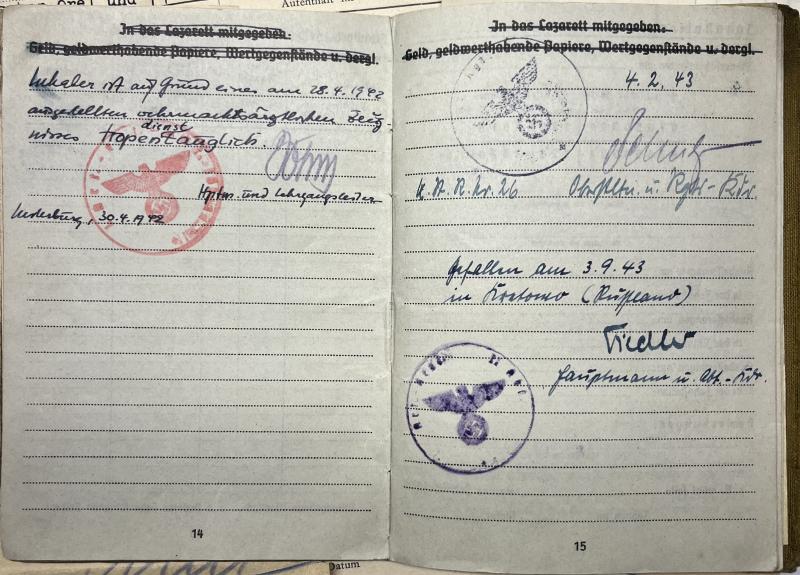 Aufenthalt im
In das Lazarett mitgegeben:
Geld, geldwerthabende Papiere, Wertgegenstände u. dergl.
Inhaber ist auf Grund eines am 28.4.1942
ausgestellten wehrmachtsärztlichen Zeug-
nisses
dienst
tauglich.
Hptm. und Lehrgangsleiter
30.4.1942
14
In das Lazarett mitgegeben:
Geld, geldwerthabende Papiere, Wertgegenstände u. dergl.
4.2.43
Nr. 26 Oberstltn. u. Rgts-Kdr.
Gefallen am 3.9.43
in (Rußland)
Fiedler
Hauptmann u. Abt.-Kdr.
15
Datum